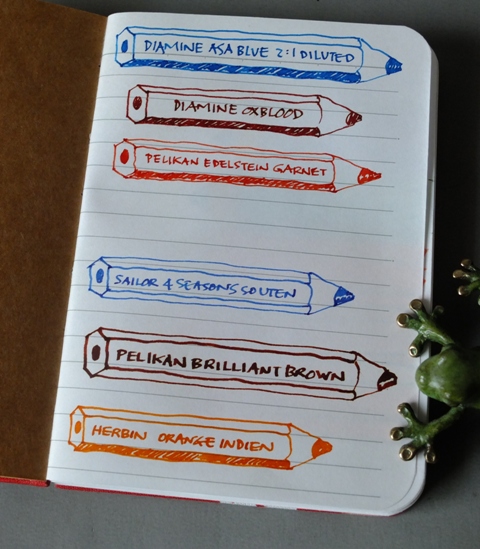 DIAMINE ASA BLUE 2:1 DILUTED
DIAMINE OXBLOOD
PELIKAN EDELSTEIN GARNET
SAILOR 4 SEASONS SOUTEN
PELIKAN BRILLIANT BROWN
HERBIN ORANGE INDIEN